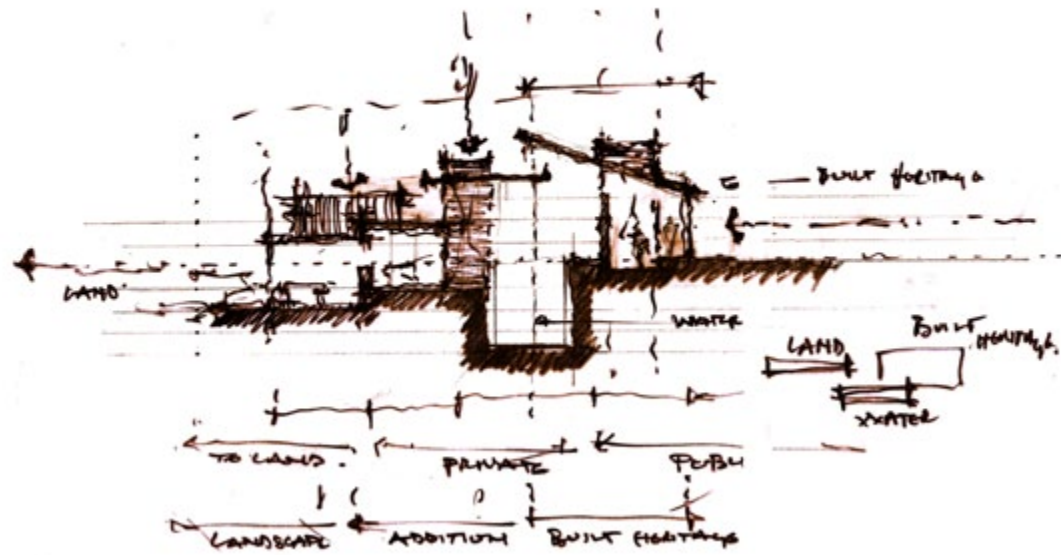 BUILT HERITAGE
LAND
WATER
LAND
BUILT
HERITAGE
WATER
TO LAND
PRIVATE
PUBLI
LANDSCAPE
ADDITION
BUILT HERITAGE